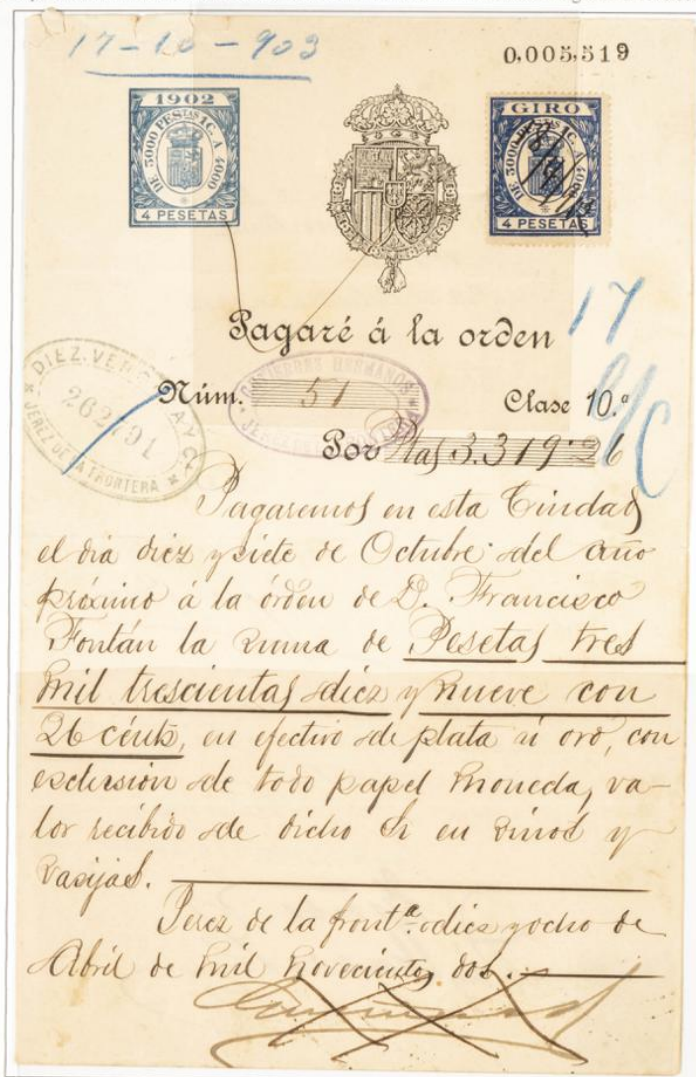 17-10-903
0,005,519
1902
DE 3000 PESTAS 1C. A 4000
4 PESETAS
GIRO
DE 3000 PESTAS 1C. A 4000
4 PESETAS
Pagaré á la orden
17
DIEZ. VERGARA Y Cª
262791
JEREZ DE LA FRONTERA
Núm. 51
HERMANOS
Clase 10.ª
Por Ptas 3.319'26
Pagaremos en esta Ciudad
el dia diez y siete de Octubre del año
próximo á la órden de D. Francisco
Fontán la suma de Pesetas tres
mil trescientas diez y nueve con
26 cénts, en efectivo de plata ú oro, con
esclusión de todo papel moneda, va-
lor recibido de dicho Sr en vinos y
vasijas.
Jerez de la frontª diez y ocho de
Abril de mil novecientos dos.